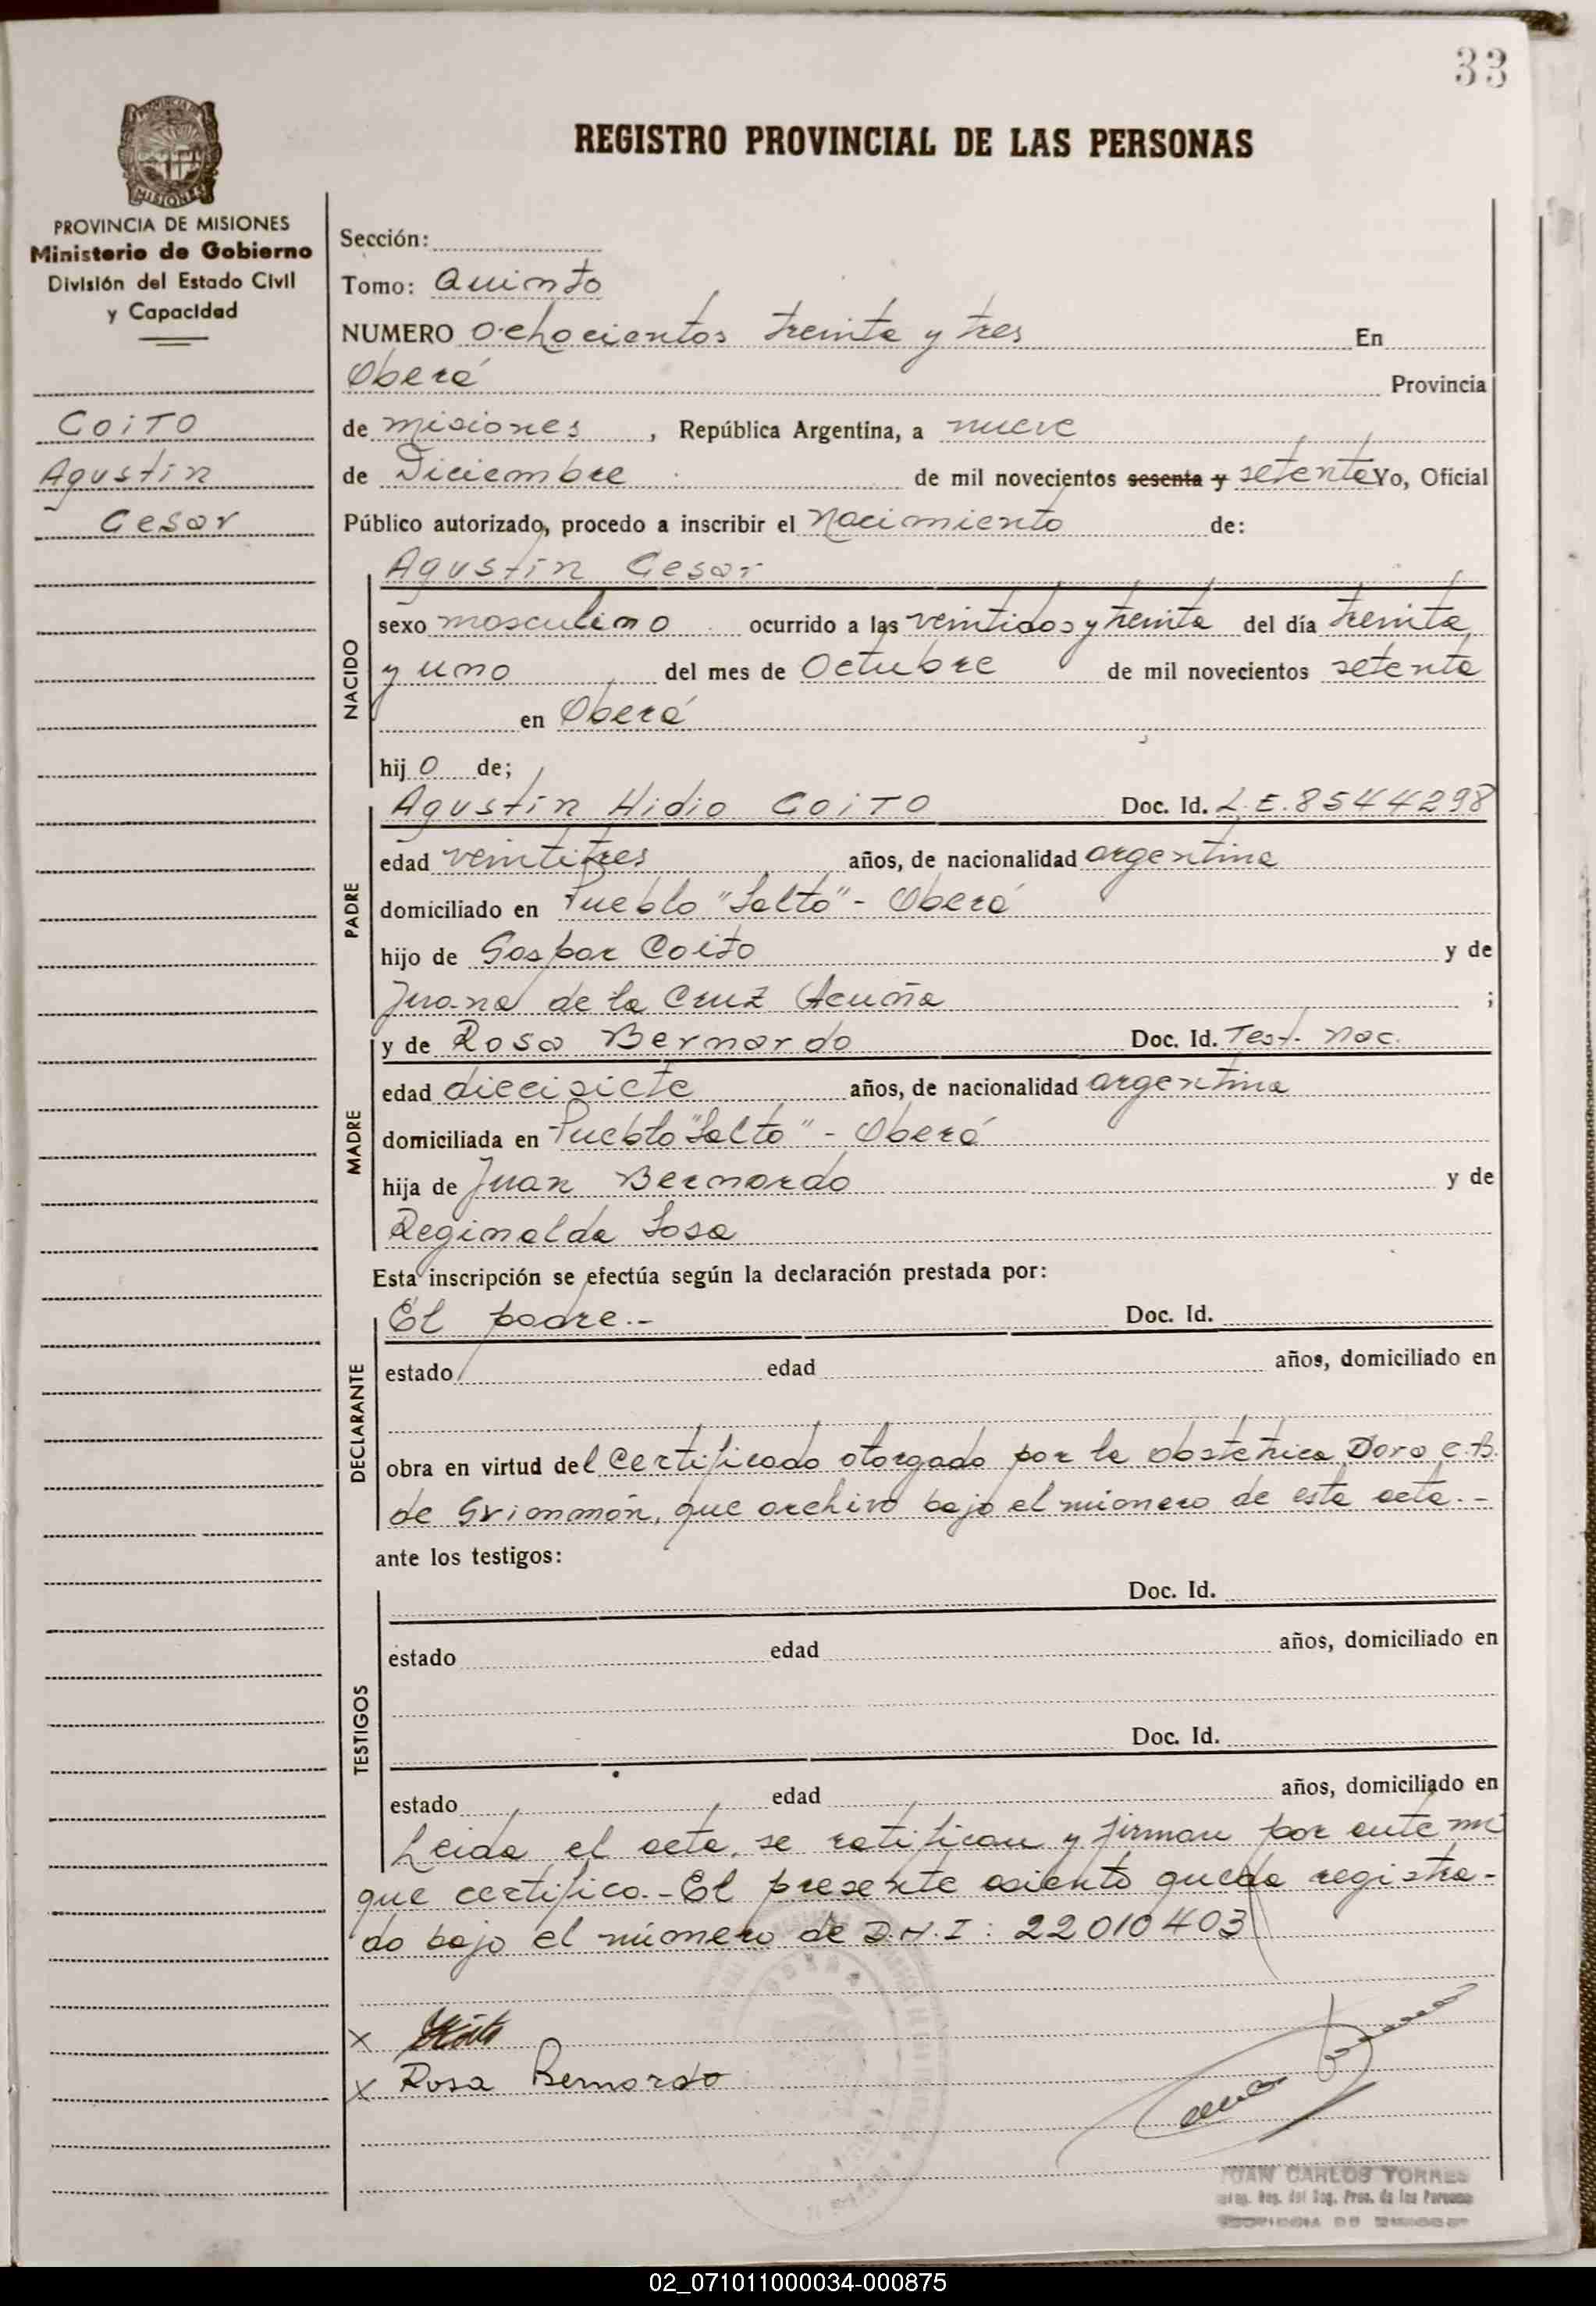 33
PROVINCIA DE MISIONES
Ministerio de Gobierno
División del Estado Civil
y Capacidad
COITO
Agustín
Cesar
REGISTRO PROVINCIAL DE LAS PERSONAS
Sección:
Tomo: Quinto
NUMERO Ochocientos treinta y tres En
Oberá Provincia
de misiones, República Argentina, a nueve
de Diciembre de mil novecientos sesenta y setenta Yo, Oficial
Público autorizado, procedo a inscribir el nacimiento de:
Agustín Cesar
NACIDO
sexo masculino ocurrido a las veintidos y treinta del día treinta
y uno del mes de Octubre de mil novecientos setenta
en Oberá
hijo de;
PADRE
Agustín Hidio COITO Doc. Id. L.E. 8544298
edad veintitres años, de nacionalidad argentina
domiciliado en Pueblo "Salto" - Oberá
hijo de Gaspar Coito y de
Juana de la Cruz Acuña ;
MADRE
y de Rosa Bernardo Doc. Id. Test. nac.
edad diecisiete años, de nacionalidad argentina
domiciliada en Pueblo "Salto" - Oberá
hija de Juan Bernardo y de
Reginalda Sosa
Esta inscripción se efectúa según la declaración prestada por:
DECLARANTE
El padre.- Doc. Id.
estado edad años, domiciliado en
obra en virtud del certificado otorgado por la obstetrica Dora C.B.
de que archivo bajo el número de esta acta.-
ante los testigos:
TESTIGOS
Doc. Id.
estado edad años, domiciliado en
Doc. Id.
estado edad años, domiciliado en
Leida el acta, se ratifican y firman por ante mí
que certifico.- El presente asiento queda registra-
do bajo el número de D.N.I: 22010403
x
x Rosa Bernardo
JUAN CARLOS TORRES
02_071011000034-000875